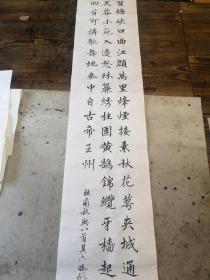 瞿塘峽口曲江頭萬里烽煙接素秋花萼夾城通
芙蓉小苑入邊愁珠簾繡柱圍黃鵠錦纜牙檣起
回首可憐歌舞地秦中自古帝王州
杜甫秋興八首其六